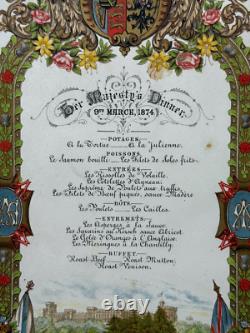 Her Majesty's Dinner.
9TH MARCH, 1874.
POTAGES.
A la Tortue. A la Julienne.
POISSONS.
Le Saumon bouilli. Les Filets de Soles frits.
ENTRÉES.
Les Rissolles de Volaille.
Les Côtelettes d'Agneau.
Les Suprême de Poulets aux truffes.
Les Filets de Bœuf piqués, sauce Madère
RÔTS.
Les Poulets. Les Cailles.
ENTREMETS.
Les Asperges à la Sauce.
Les Savarins au Kirsch sauce Abricot.
La Gelée d'Oranges à l'Anglaise.
Les Meringues à la Chantilly.
BUFFET.
Roast Beef. Roast Mutton.
Roast Venison.